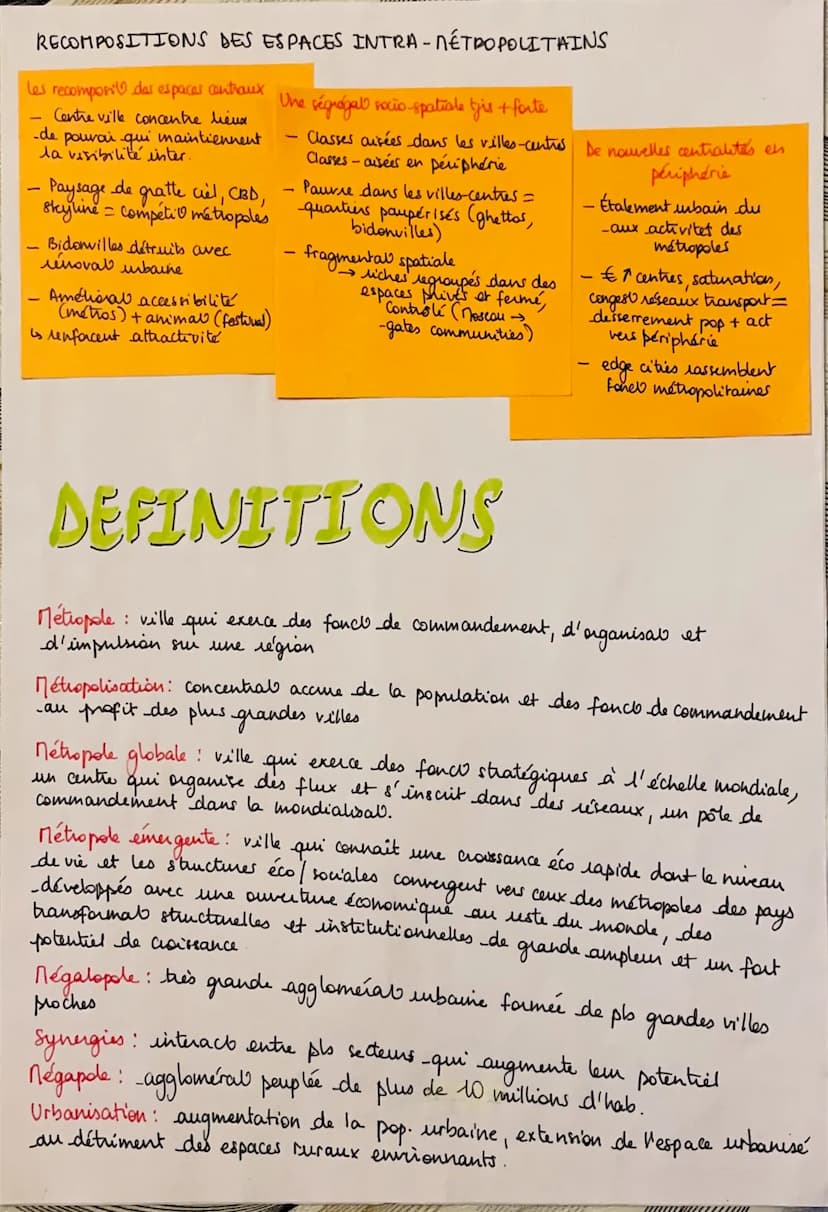 RECOMPOSITIONS DES ESPACES INTRA-MÉTROPOLITAINS
Les recomposit° des espaces centraux
- Centre ville concentre lieux
de pouvoir qui maintiennent
la visibilité inter.
- Paysage de gratte ciel, CBD,
skyline = compétit° métropoles
- Bidonvilles détruits avec
rénovat° urbaine
- Améliorat° accessibilité
(métros) + animat° (festival)
↳ renforcent attractivité
Une ségrégat° socio-spatiale tjrs + forte
- Classes aisées dans les villes-centres
Classes - aisées en périphérie
- Pauvre dans les villes-centres =
quartiers paupérisés (ghettos,
bidonvilles)
- fragmentat° spatiale
→ riches regroupés dans des
espaces privés et fermé,
contrôlé (Moscou →
gates communities)
De nouvelles centralités en
périphérie
- Étalement urbain du
aux activités des
métropoles
- € ↑ centres, saturation,
congest° réseaux transport =
desserrement pop + act
vers périphérie
- edge cities rassemblent
fonct° métropolitaines
DEFINITIONS
Métropole : ville qui exerce des fonct° de commandement, d'organisat° et
d'impulsion sur une région
Métropolisation : concentrat° accrue de la population et des fonct° de commandement
au profit des plus grandes villes
Métropole globale : ville qui exerce des fonct° stratégiques à l'échelle mondiale,
un centre qui organise des flux et s'inscrit dans des réseaux, un pôle de
commandement dans la mondialisat°.
Métropole émergente : ville qui connaît une croissance éco rapide dont le niveau
de vie et les structures éco/sociales convergent vers ceux des métropoles des pays
développés avec une ouverture économique au reste du monde, des
transformat° structurelles et institutionnelles de grande ampleur et un fort
potentiel de croissance
Mégalopole : très grande agglomérat° urbaine formée de pls grandes villes
proches
Synergies : interact° entre pls secteurs qui augmente leur potentiel
Mégapole : agglomérat° peuplée de plus de 10 millions d'hab.
Urbanisation : augmentation de la pop. urbaine, extension de l'espace urbanisé
au détriment des espaces ruraux environnants.